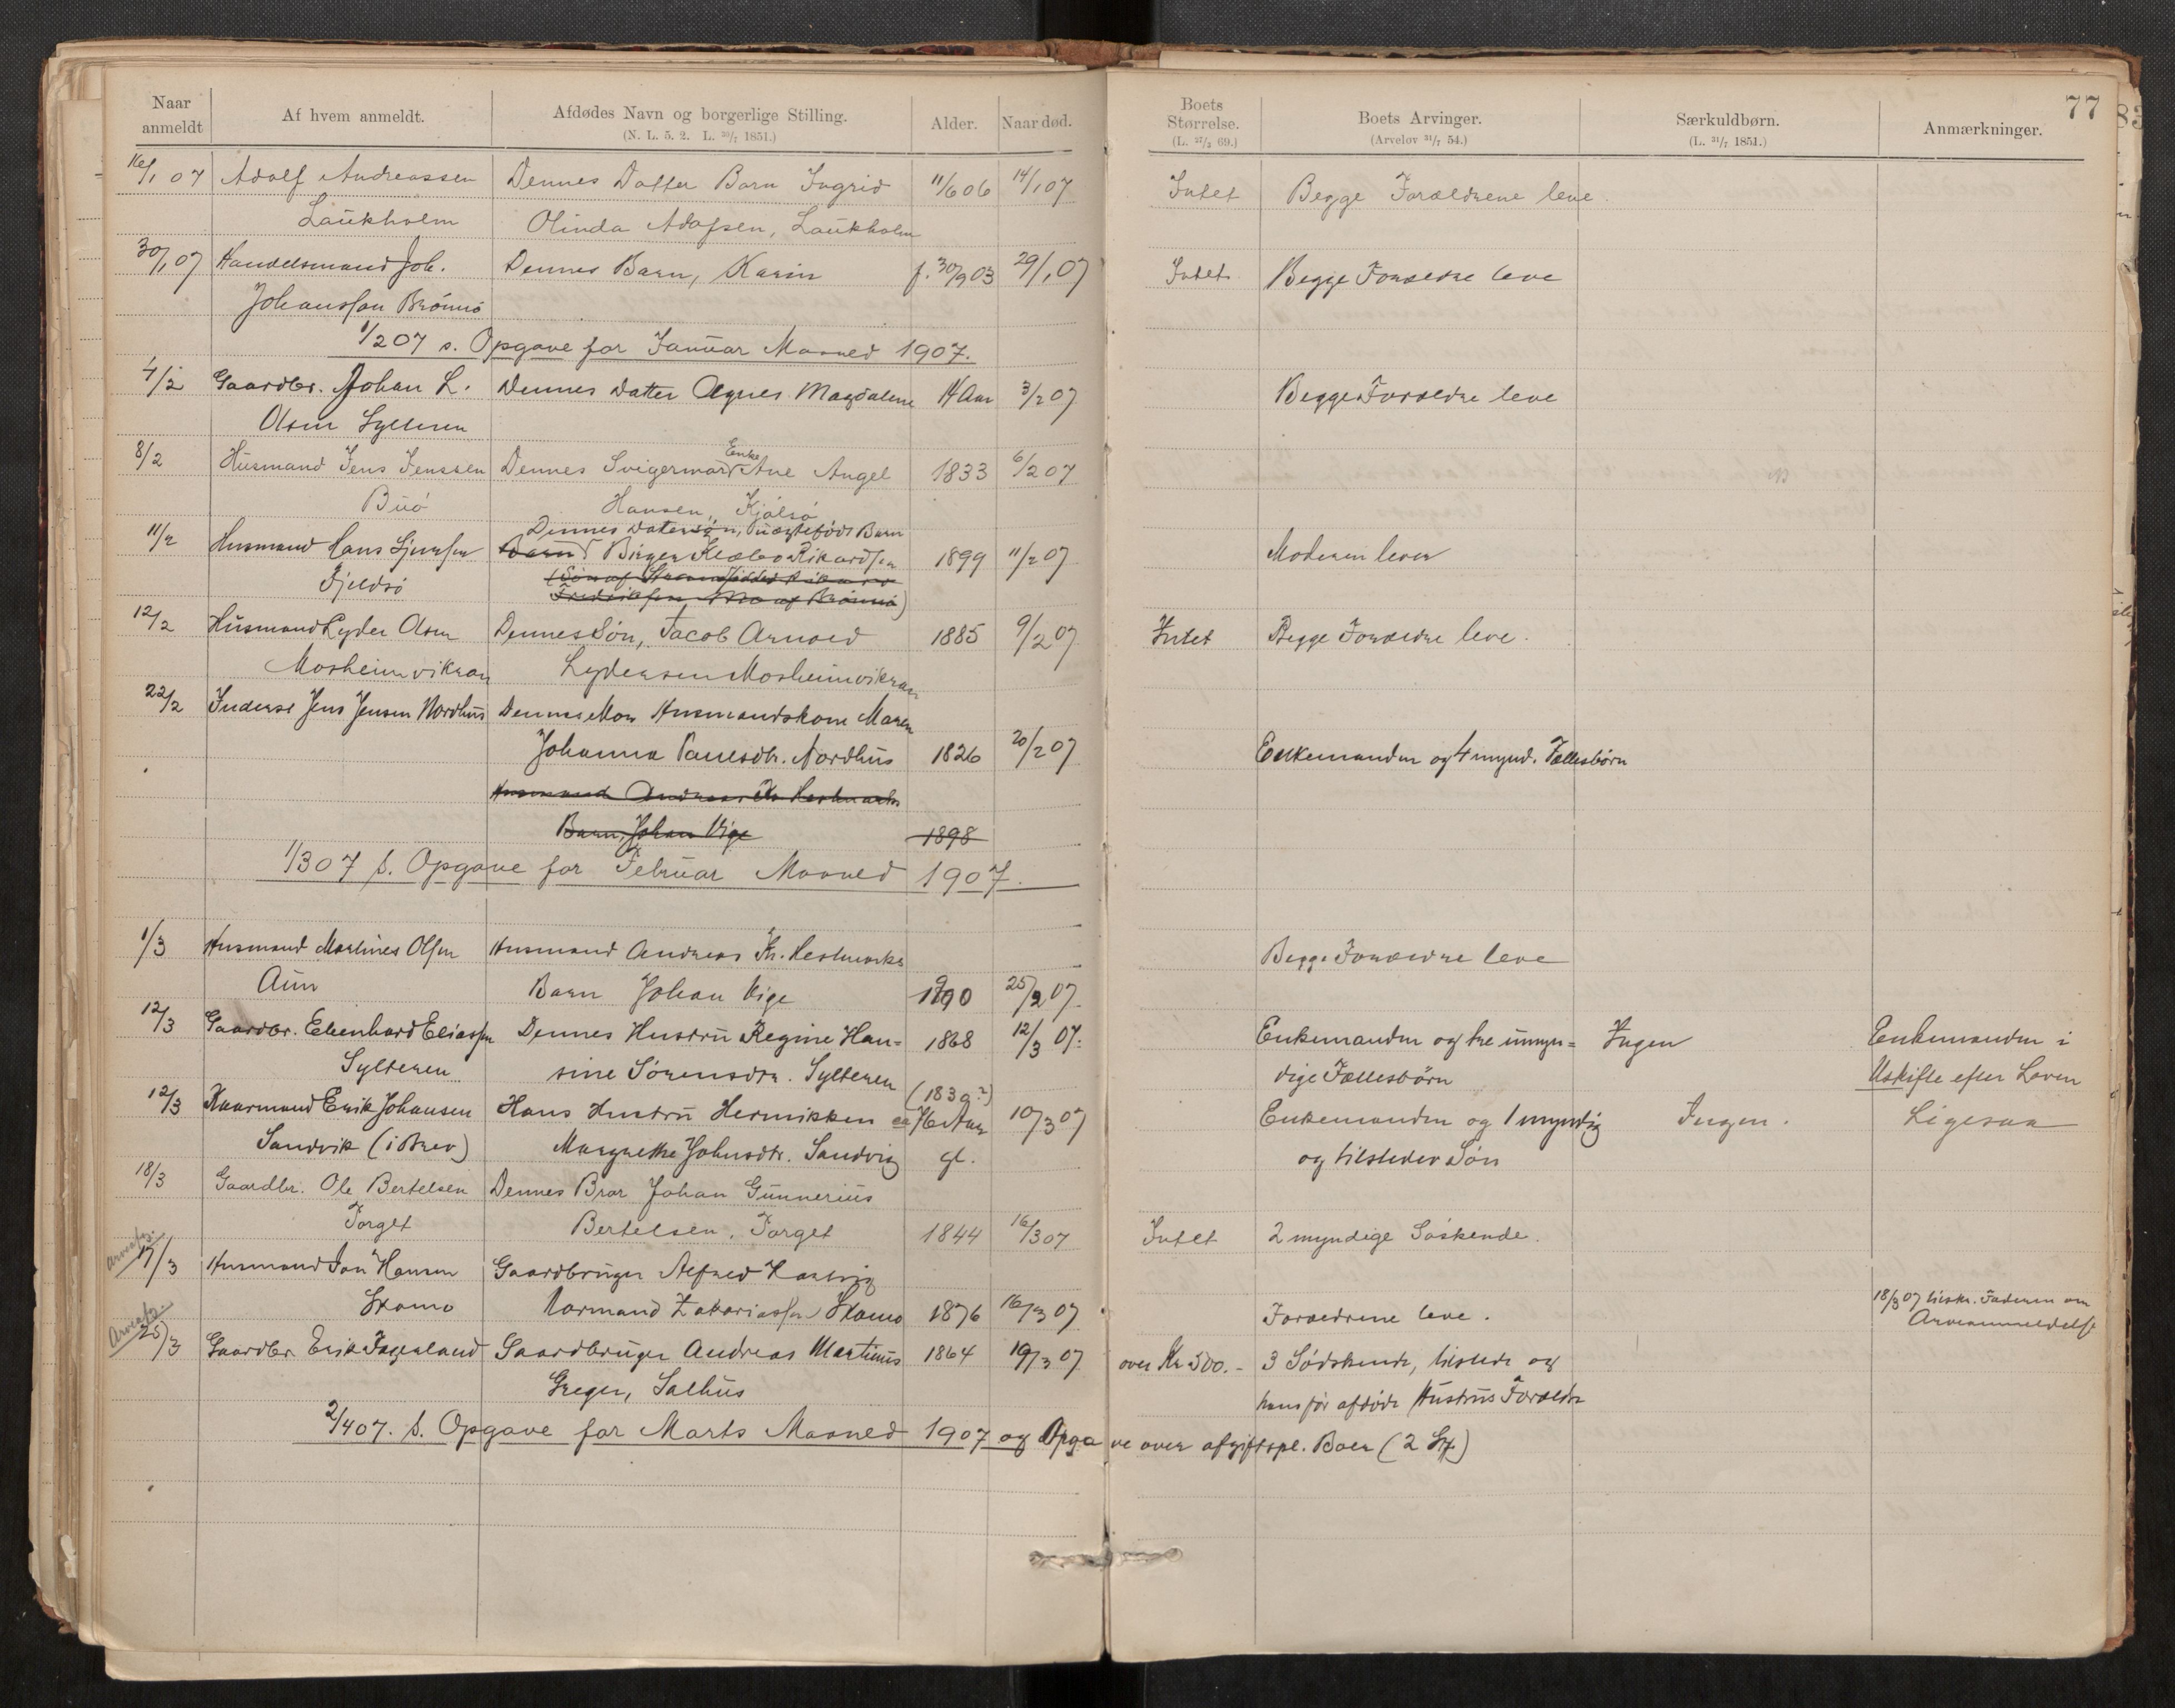 77
Naar anmeldt
Af hvem anmeldt.
Afdødes Navn og borgerlige Stilling.
(N. L. 5. 2. L. 30/7 1851.)
Alder.
Naar død.
Boets Størrelse.
(L. 27/3 69.)
Boets Arvinger.
(Arvelov 31/7 54.)
Særkuldbørn.
(L. 31/7 1851.)
Anmærkninger.
16/1 07 Adolf Andreassen Dennes Datter Barn Ingrid 11/6 06 14/1 07 Intet Begge Forældrene leve
Laukholm Olinda Adofsen, Laukholm
30/1 07 Handelsmand Joh. Dennes Barn, Karin f. 30/9 03 29/1 07 Intet Begge Forældre leve
Johanssen Brønnø
1/2 07 s. Opgave for Januar Maaned 1907.
4/2 Gaardbr. Johan L. Dennes Datter Agnes Magdalene 14 Aar 3/2 07 Begge Forældre leve
Olsen Sylteren
8/2 Husmand Jens Jenssen Dennes Svigermor Enke Ane Angel 1833 6/2 07
Buø Hansen, Kjølsø
Dennes Datersøn, uægtefødt Barn
11/2 Husmand Hans Barn Birger Klæbo Rikardsen 1899 11/2 07 Moderen lever
Fjeldsø
12/2 Husmand Lyder Olsen Dennes Søn, Jacob Arnold 1885 9/2 07 Intet Begge Forældre leve.
Mosheimvikran Lydersen Mosheimvikran
22/2 Inderst Jens Jensen Nordhus Dennes Mor Husmandskone Maren
Johanna Paulsdtr. Nordhus 1826 20/2 07 Enkemanden og 4 mynd. Fællesbørn
Husmand Andreas Kr. Hestmarks
Barn, Johan Vige 1898
1/3 07 s. Opgave for Februar Maaned 1907.
1/3 Husmand Martines Olsen Husmand Andreas Kr. Hestmarks Begge Forældre leve
Aun Barn Johan Vige 1900 25/2 07.
12/3 Gaardbr. Edenhard Eliassen Dennes Hustru Regine Han= 1868 12/3 07. Enkemanden og tre umyn= Ingen Enkemanden i
Sylteren sine Sørensdtr. Sylteren dige Fællesbørn Uskifte efter Loven
(1830?)
12/3 Kaarmand Erik Johansen Hans Hustru Hermikken ca 76 Aar 10/3 07 Enkemanden og 1 myndig Ingen. Ligesaa
Sandvik (i Brev) Margrethe Johnsdtr. Sandvig gl. og tilsteder Søn
18/3 Gaardbr. Ole Bertelsen Dennes Bror Johan Gunnerius
Torget Bertelsen, Torget 1844 16/3 07 Intet 2 myndige Søskende.
17/3 Husmand Jon Hansen Gaardbruger Alfred Hartvig
Skomo Normand Zakariassen Skomo 1876 16/3 07 Forældrene leve. 18/3 07 tilskr. Faderen om
Arveanmeldelse
25/3 Gaardbr Erik Fagerland Gaardbruger Andreas Martinus 1864 19/3 07 over Kr 500.- 3 Sødskende, tilstede og
Greger, Salhus hans før afdøde Hustrus Forældre
2/4 07. s. Opgave for Marts Maaned 1907 og Opgave over afgiftspl. Boer (2 St)